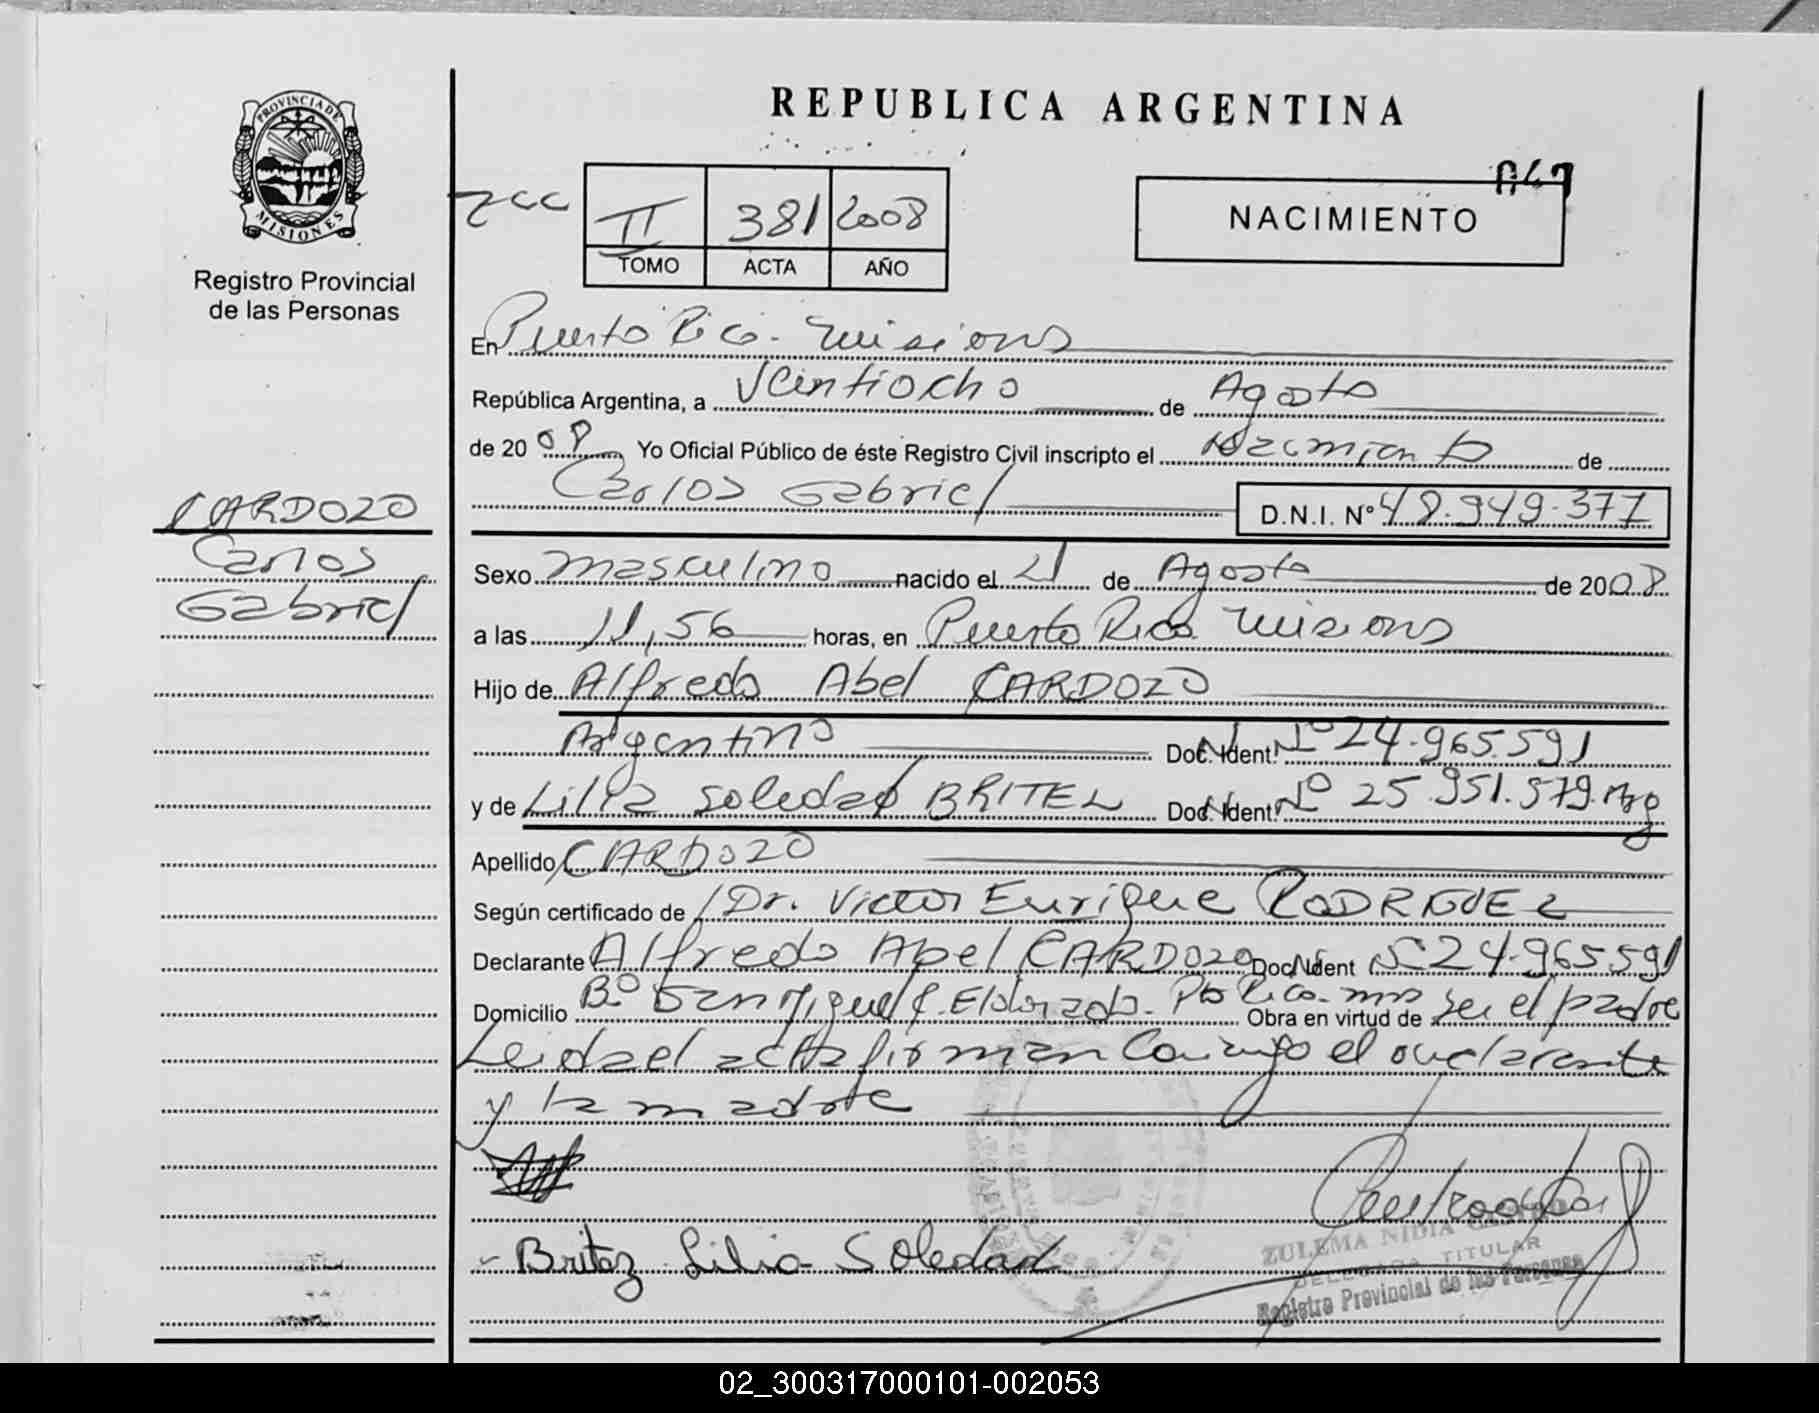 REPUBLICA ARGENTINA
PROVINCIA DE
MISIONES
Registro Provincial
de las Personas
II 381 2008
TOMO ACTA AÑO
047
NACIMIENTO
En Puerto Rico - Misiones
República Argentina, a Veintiocho de Agosto
de 2008 Yo Oficial Público de éste Registro Civil inscripto el Nacimiento de
Carlos Gabriel D.N.I. N° 48.949.377
CARDOZO
Carlos
Gabriel
Sexo masculino nacido el 21 de Agosto de 2008
a las 11,56 horas, en Puerto Rico Misiones
Hijo de Alfredo Abel CARDOZO
Argentino Doc. Ident. N° 24.965.591
y de Lilia Soledad BRITEZ Doc. Ident. N° 25.951.579. Arg
Apellido CARDOZO
Según certificado de Dr. Victor Enrique RODRIGUEZ
Declarante Alfredo Abel CARDOZO Doc. Ident 24.965591
Domicilio B° San Miguel Eldorado. Pto Rico. mns Obra en virtud de ser el padre
Leida el acta firman Conmigo el declarante
y la madre
- Britez Lilia Soledad
ZULEMA NIDIA
DELEGADA TITULAR
Registro Provincial de las Personas
02_300317000101-002053